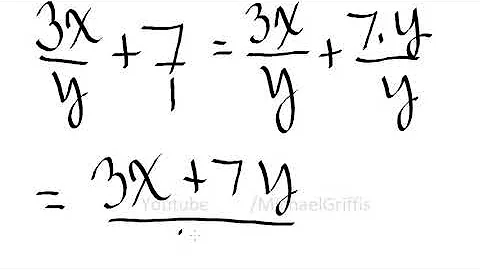 3x/y + 7/1 = 3x/y + 7·y/y
= 3x + 7y
Youtube /MichaelGriffis